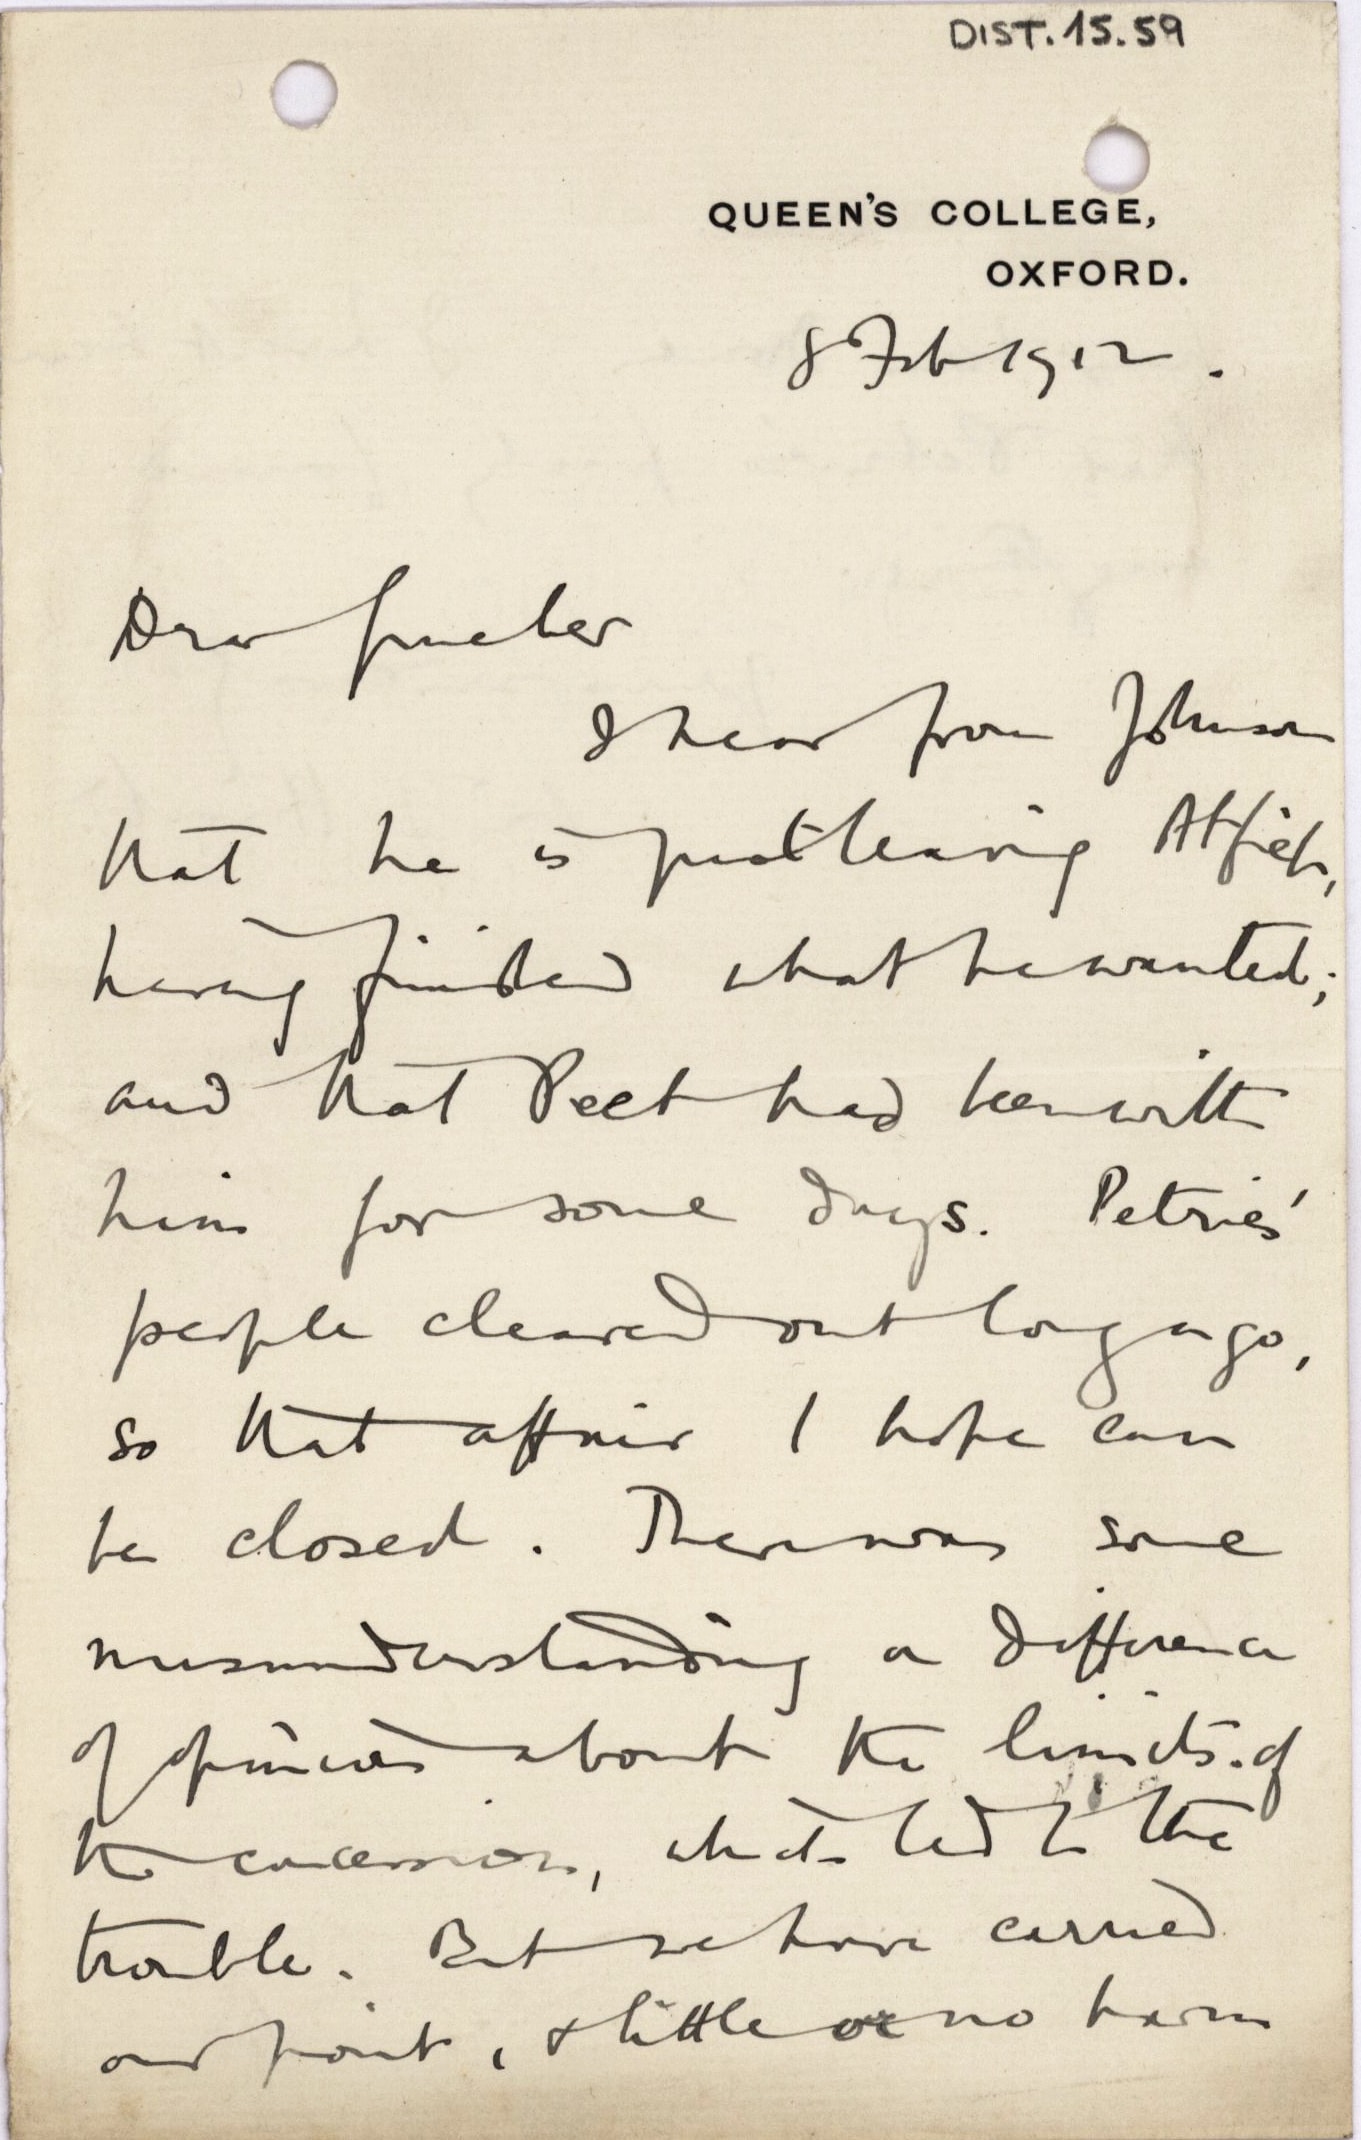 DIST. 15.59
QUEEN'S COLLEGE,
OXFORD.
8 Feb 1912.
Dear Grueber
I hear from Johnson
that he is just leaving Atfieh,
having finished what he wanted;
and that Peet had been with
him for some days. Petries'
people cleared out long ago,
so that affair I hope can
be closed. There was some
misunderstanding or difference
of opinion about the limits of
the concession, which led to the
trouble. But we have carried
our point, & little or no harm